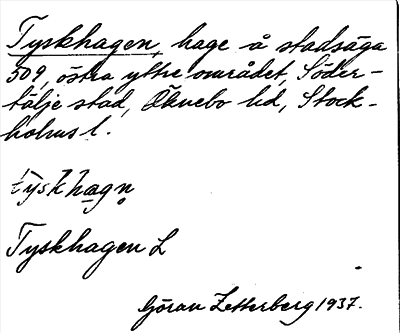 Tyskhagen, hage å stadsäga
509, östra yttre området, Söder-
tälje stad, Öknebo hd, Stock-
holms l.
tyskhagn
Tyskhagen L
Göran Zetterberg 1937.